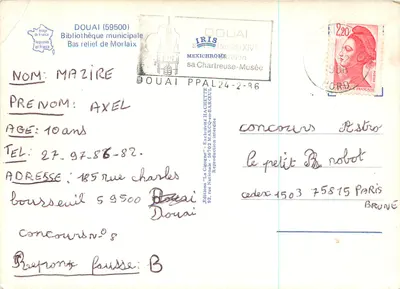 DOUAI (59500)
Bibliothèque municipale
Bas relief de Morlaix
IRIS
MEXICHROME
DOUAI
sa Chartreuse-Musée
DOUAI PPAL 24-2-86
2,20
NOM: MAZIRE
PRENOM: AXEL
AGE: 10 ans
TEL: 27-97-86-82.
ADRESSE: 185 rue charles
bourseuil 59500 Douai
Douai
concours n° 8
Reponse fausse: B
concours Astro
le petit B robot
cedex 1503 75815 PARIS
BRUNE